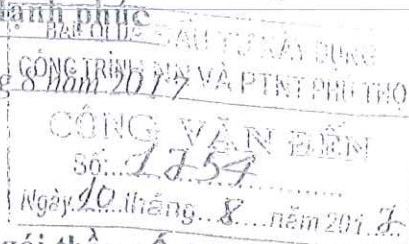 hạnh phúc
BAN QLDA ĐẦU TƯ XÂY DỰNG
8 năm 2017
CÔNG TRÌNH NN VÀ PTNT PHÚ THỌ
CÔNG VĂN ĐẾN
Số: 1254
Ngày 10 tháng 8 năm 2017
gói thầu số